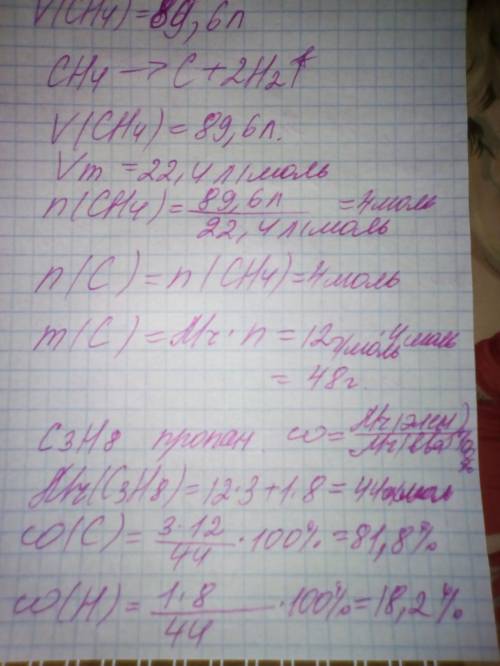 V(CH4)=89,6л
CH4 → C + 2H2↑
V(CH4) = 89,6л.
Vm = 22,4 л/моль
n(CH4) = 89,6л / 22,4 л/моль = 4моль
n(C) = n(CH4) = 4 моль
m(C) = Mr · n = 12 г/моль · 4 моль
= 48г.
C3H8 пропан ω =
Mr(C3H8) = 12·3+1·8 = 44
ω(C) = 3·12 / 44 · 100% = 81,8%
ω(H) = 1·8 / 44 · 100% = 18,2%